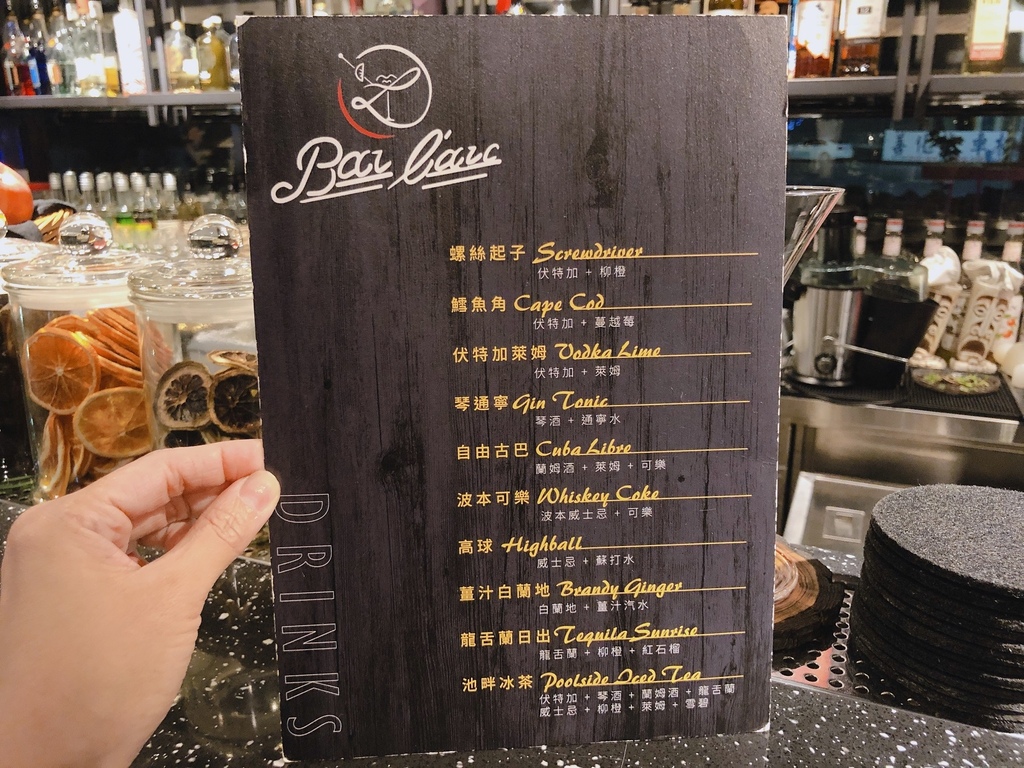 Bar l'arc
螺絲起子 Screwdriver
伏特加 + 柳橙
鱈魚角 Cape Cod
伏特加 + 蔓越莓
伏特加萊姆 Vodka Lime
伏特加 + 萊姆
琴通寧 Gin Tonic
琴酒 + 通寧水
自由古巴 Cuba Libre
蘭姆酒 + 萊姆 + 可樂
波本可樂 Whiskey Coke
波本威士忌 + 可樂
高球 Highball
威士忌 + 蘇打水
薑汁白蘭地 Brandy Ginger
白蘭地 + 薑汁汽水
龍舌蘭日出 Tequila Sunrise
龍舌蘭 + 柳橙 + 紅石榴
池畔冰茶 Poolside Iced Tea
伏特加 + 琴酒 + 蘭姆酒 + 龍舌蘭
威士忌 + 柳橙 + 萊姆 + 雪碧
DRINKS